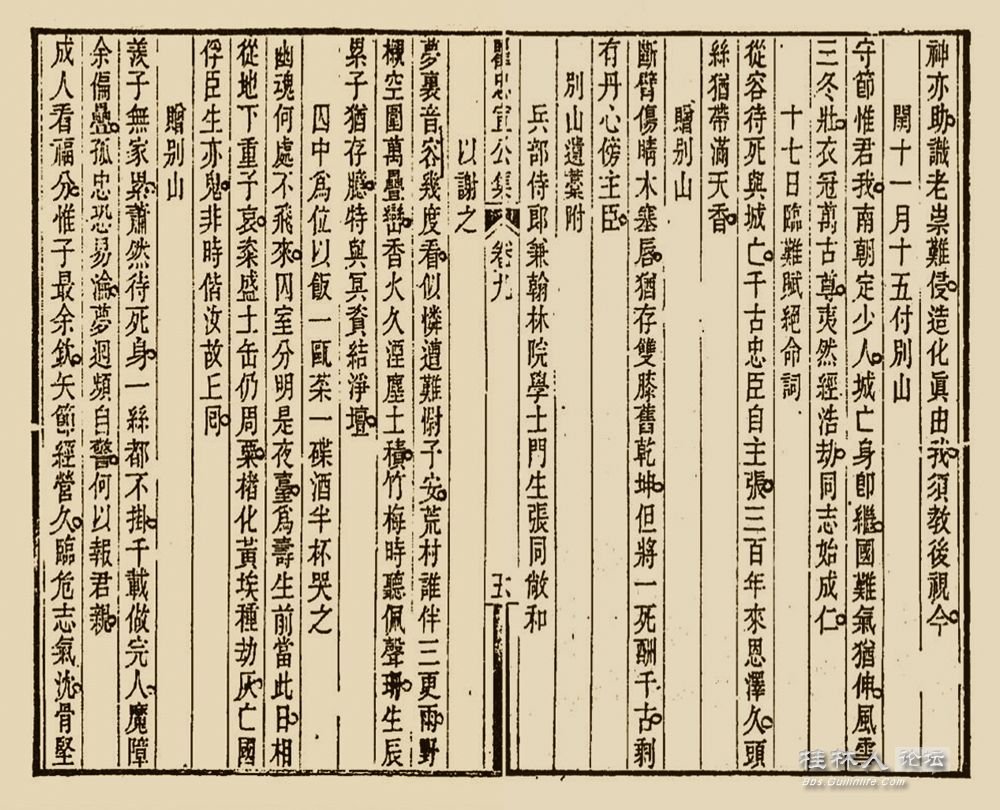 神亦助識老祟難侵造化眞由我須教後視今
閏十一月十五付別山
守節惟君我南朝定少人城亡身卽繼國難氣猶伸風雪
三冬壯衣冠萬古尊夷然經浩劫同志始成仁
十七日臨難賦絕命詞
從容待死與城亡千古忠臣自主張三百年來恩澤久頭
絲猶帶滿天香
贈別山
斷臂傷睛木塞唇猶存雙膝舊乾坤但將一死酬千古剩
有丹心傍主臣
別山遺藁附
兵部侍郎兼翰林院學士門生張同敞和
瞿忠宣公集
卷九
以謝之
夢裏音容幾度看似憐遭難慰子安荒村誰伴三更雨野
櫬空圍萬疊巒香火久湮塵土積竹梅時聽佩聲珊生辰
累子猶存臆特與冥資結淨壇
囚中爲位以飯一甌茶一碟酒半杯哭之
幽魂何處不飛來囚室分明是夜臺爲壽生前當此日相
從地下重子哀粢盛土缶仍周粟楮化黃埃種劫灰亡國
俘臣生亦鬼非時偕汝故丘同
贈別山
羨子無家累蕭然待死身一絲都不掛千載做完人魔障
余偏疊孤忠恐易淪夢迴頻自警何以報君親
成人看福分惟子最余欽矢節經營久臨危志氣沈骨堅
桂林人论坛
Bbs.Guilinlife.Com